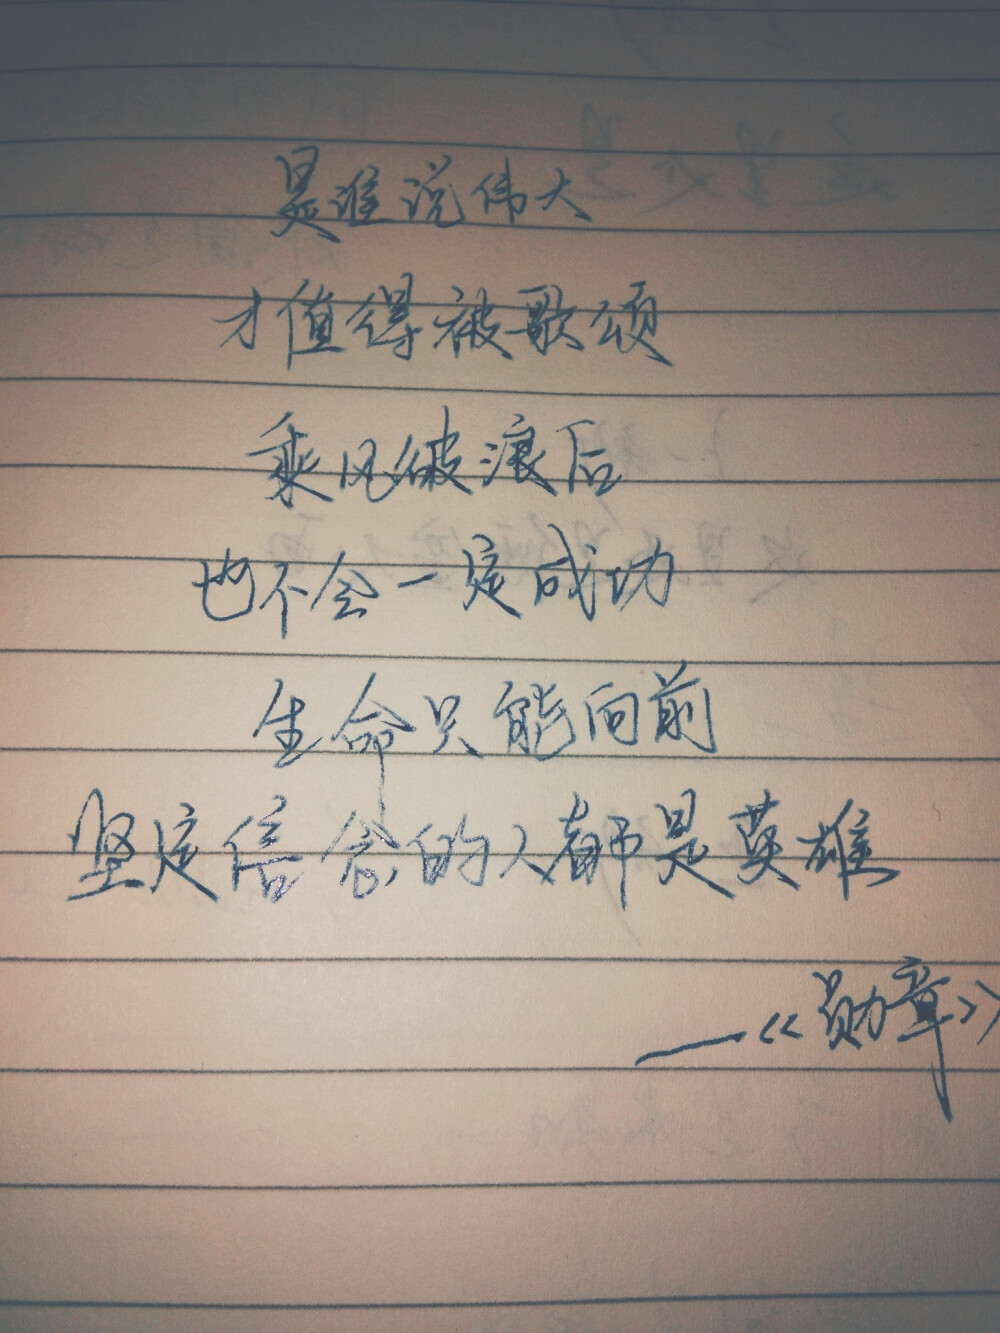 是谁说伟大
才值得被歌颂
乘风破浪后
也不会一定成功
生命只能向前
坚定信念的人都是英雄
——《勋章》